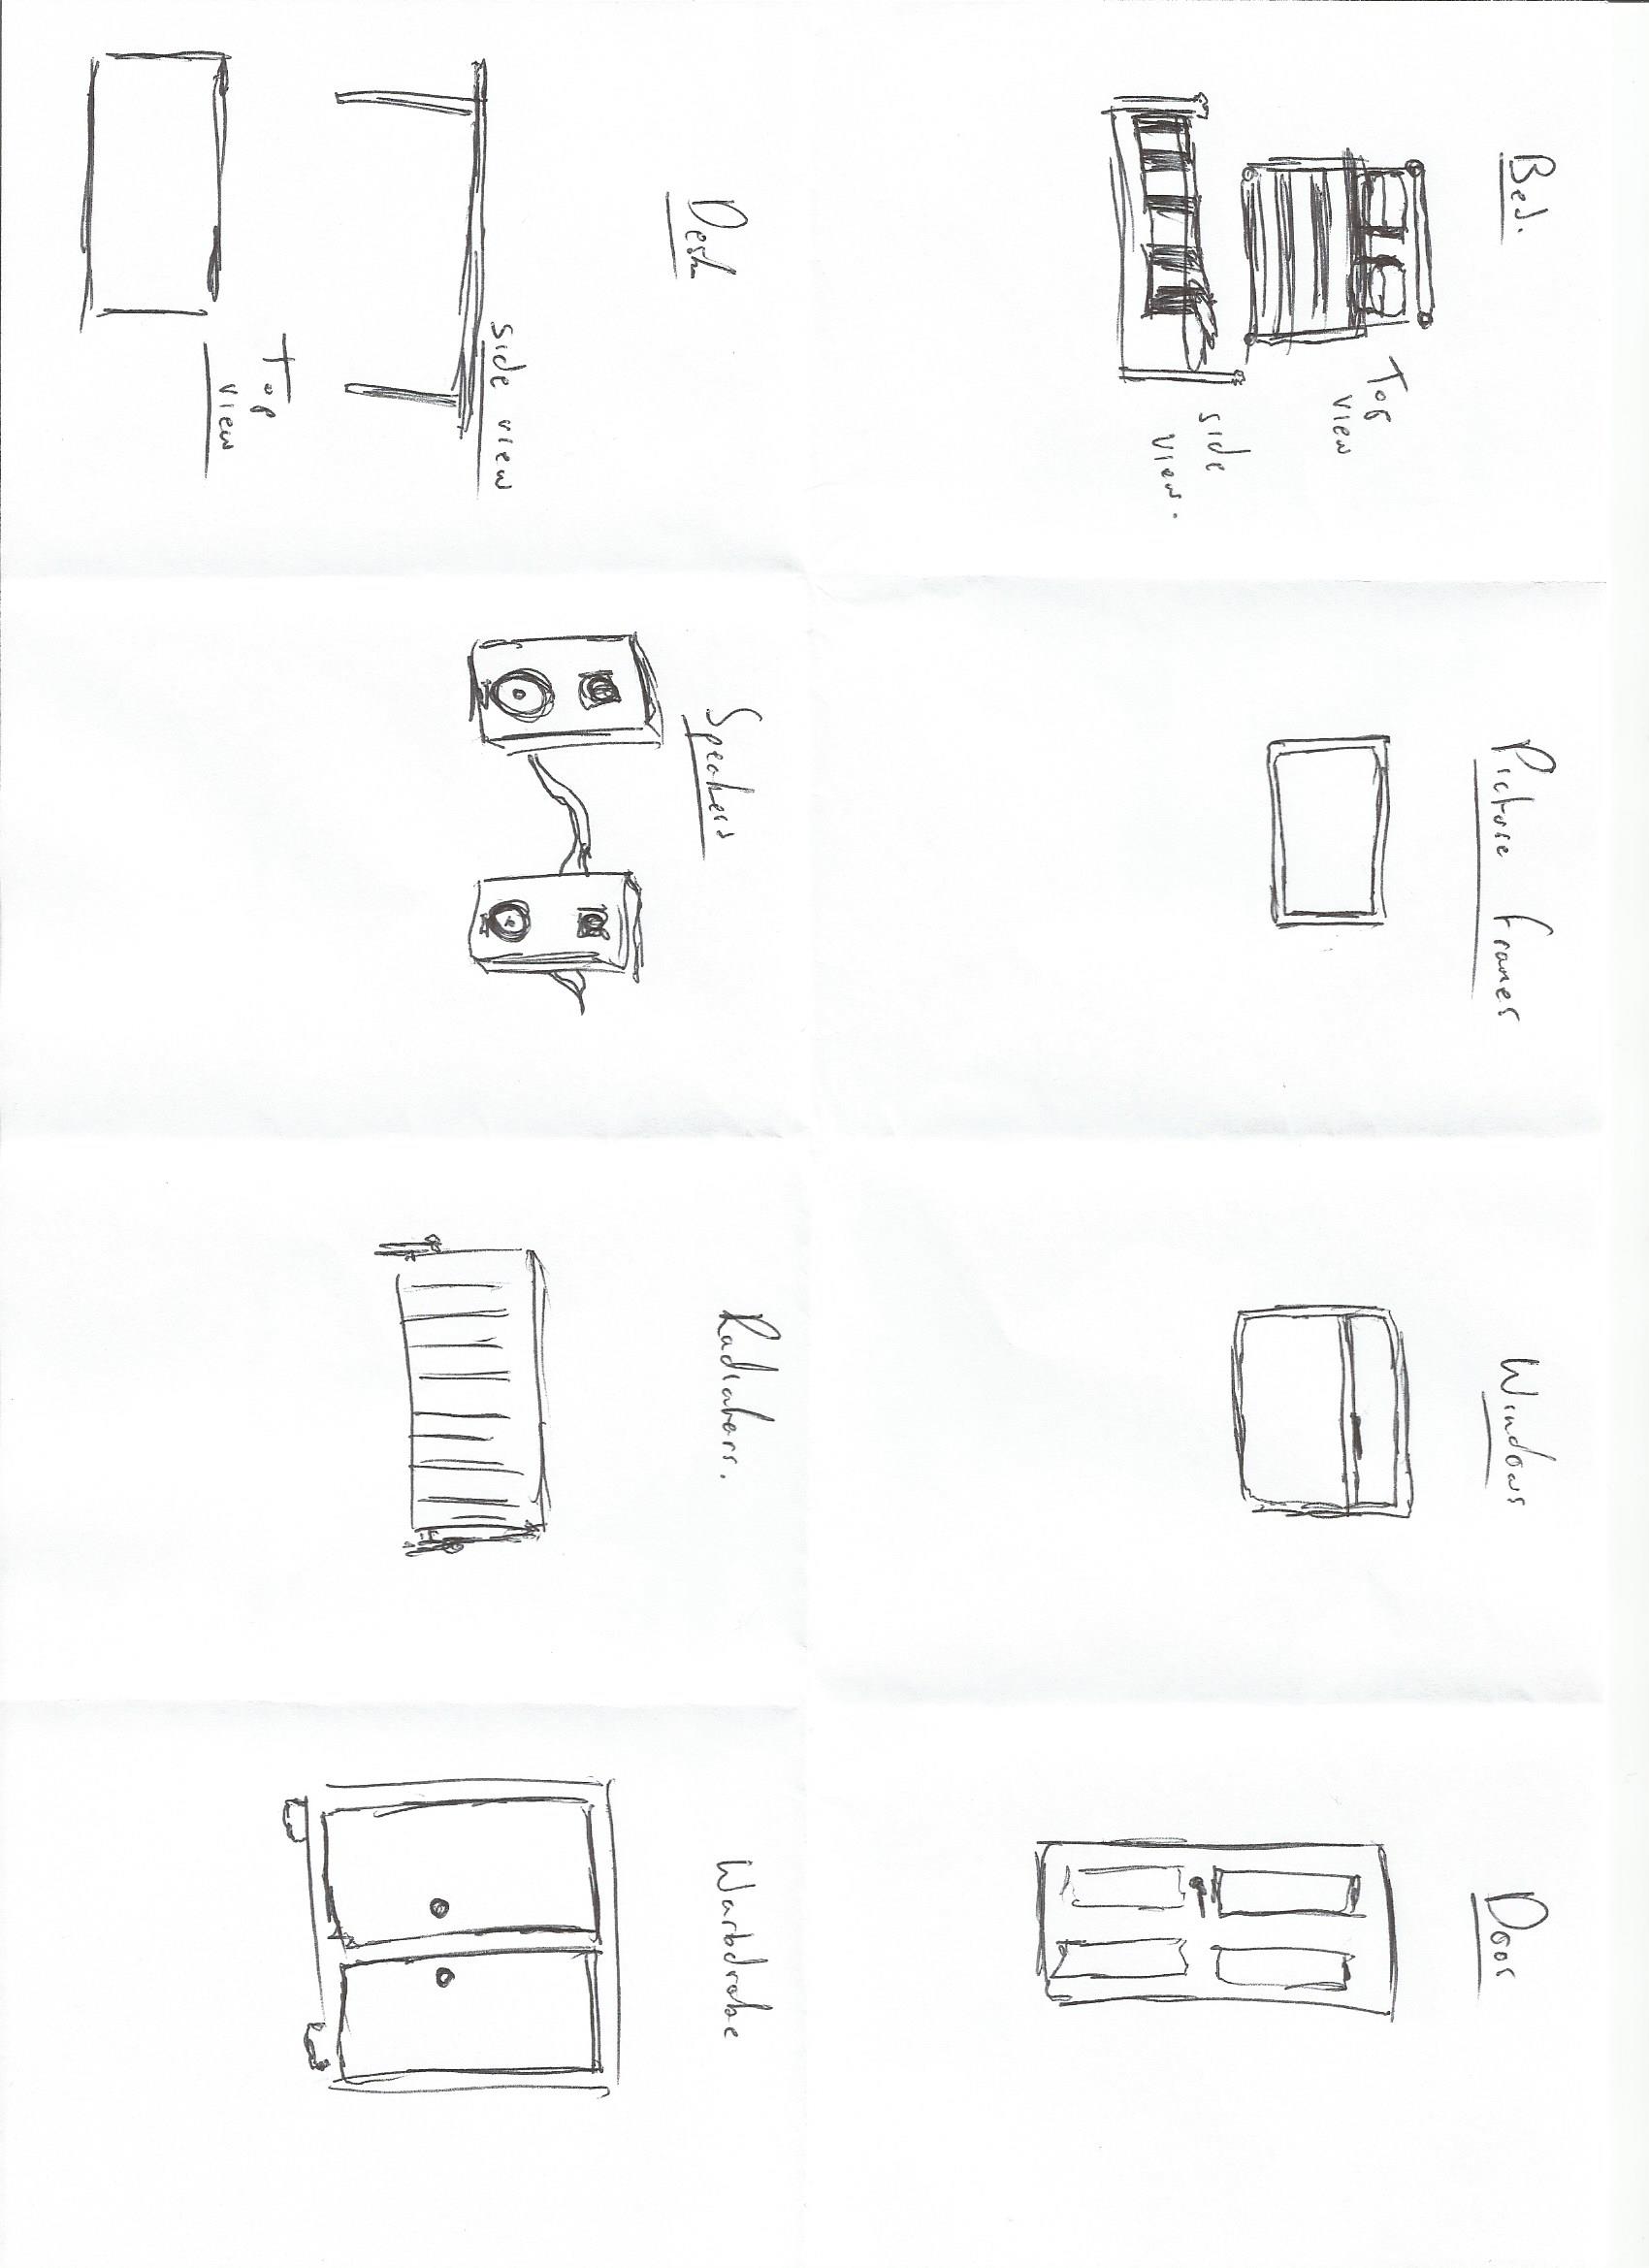 Bed.
Top
view
side
view.
Picture frames
Windows
Door
Desk
side view
Top
view
Speakers
Radiators.
Warbdrobe